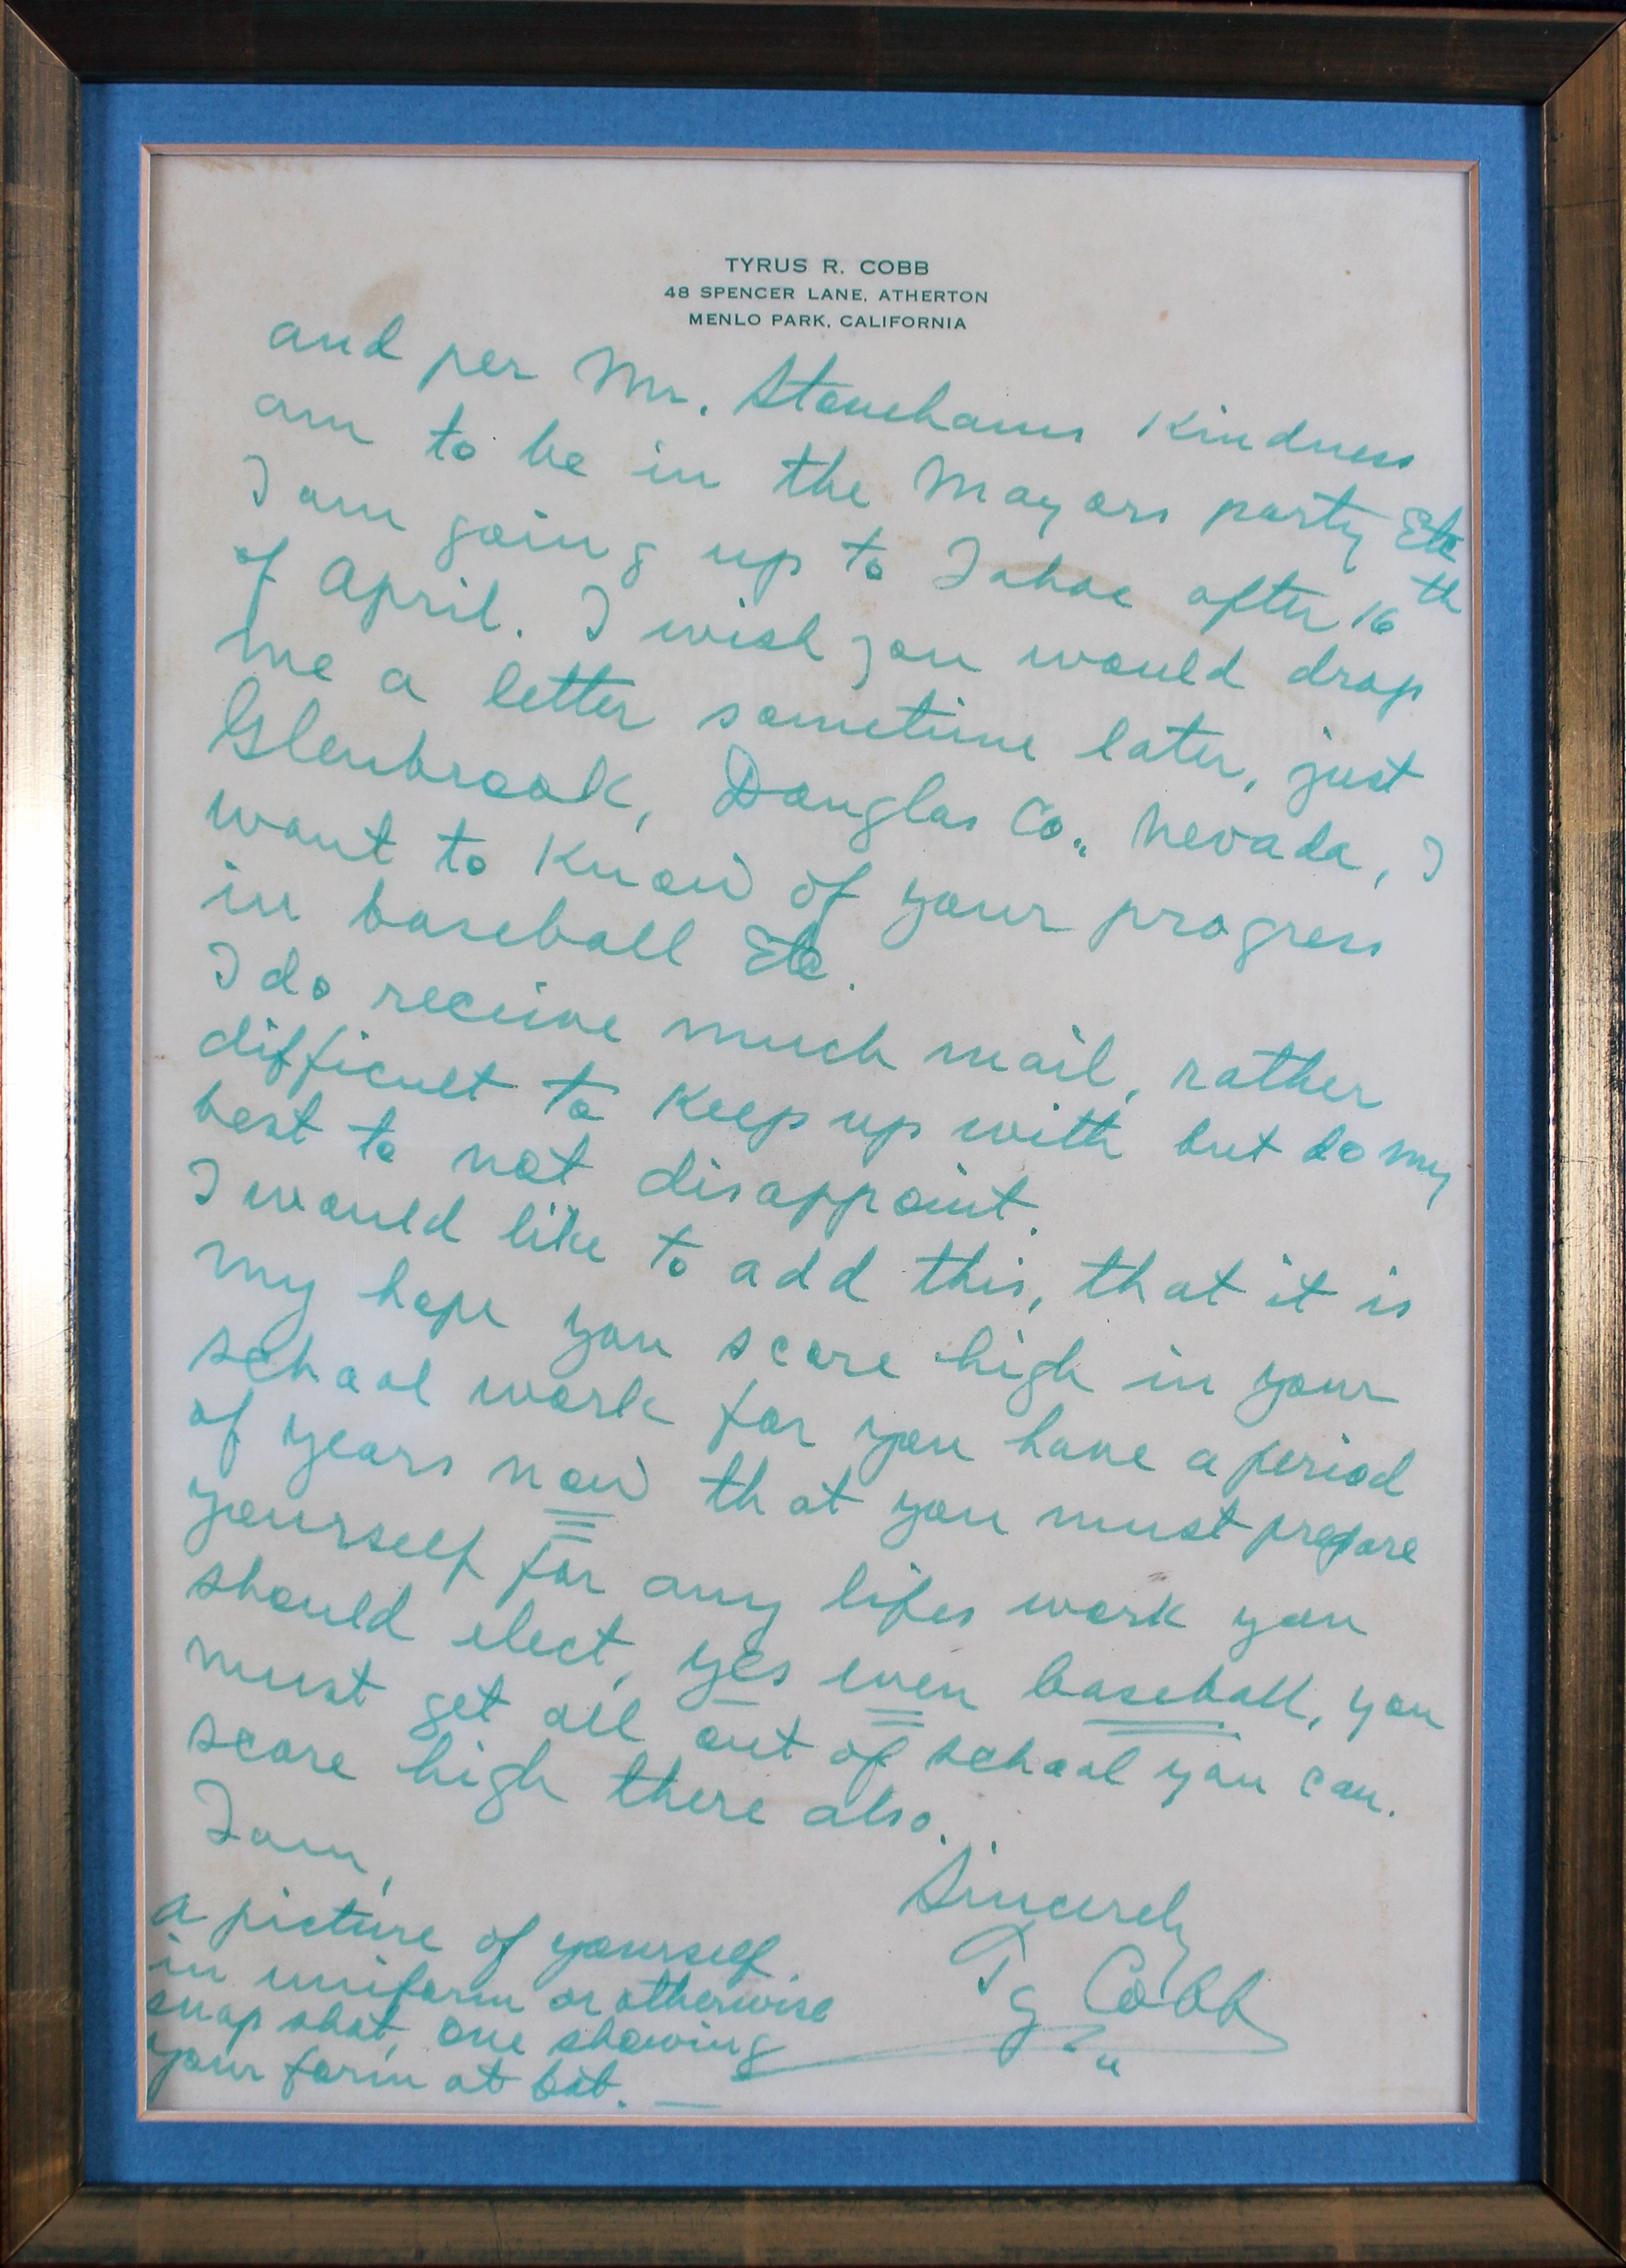 TYRUS R. COBB
48 SPENCER LANE, ATHERTON
MENLO PARK, CALIFORNIA
and per Mr. Stonehams Kindness
am to be in the Mayors party Etc
I am going up to Tahoe after 16th
of April. I wish you would drop
me a letter sometime later, just
Glenbrook, Douglas Co., Nevada, I
want to Know of your progress
in baseball Etc.
I do receive much mail, rather
difficult to Keep up with but do my
best to not disappoint.
I would like to add this, that it is
my hope you score high in your
school work for you have a period
of years now that you must prepare
yourself for any lifes work you
should elect, yes even baseball, you
must get all out of school you can.
score high there also.
I am,
Sincerely
Ty Cobb
a picture of yourself
in uniform or otherwise
snap shot, one showing
your form at bat.